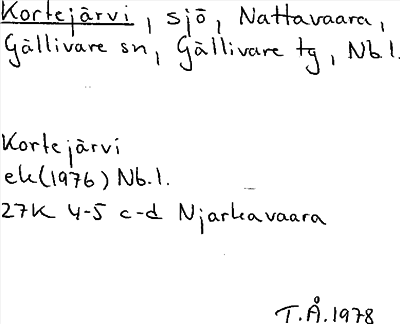 Kortejärvi, sjö, Nattavaara,
Gällivare sn, Gällivare tg, Nb.l.
Kortejärvi
ek (1976) Nb.l.
27K 4-5 c-d Njarkavaara
T.Å. 1978